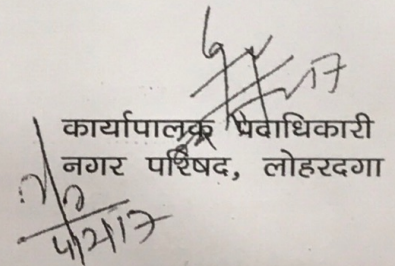 कार्यापालक पदाधिकारी
नगर परिषद, लोहरदगा
4/2/17